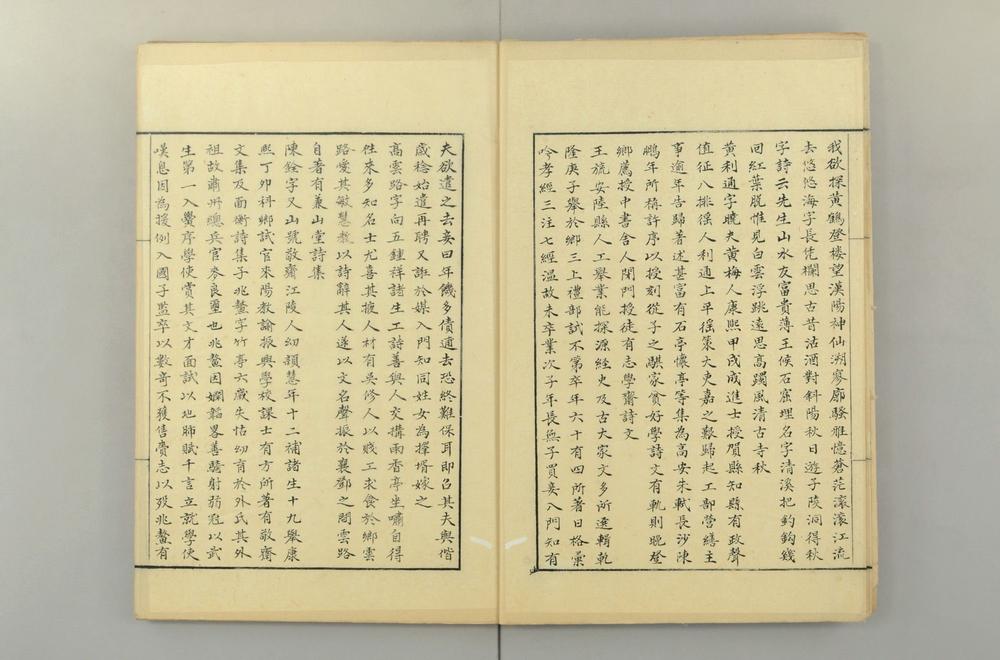 我欲探黃鶴登楼望漢陽神仙溯寥廓騷雅憶蒼茫滾滾江流
去悠悠海字長凭欄思古昔沽酒對斜陽秋日遊子陵洞得秋
字詩云先生山水友富貴薄王候石窟埋名字清溪把釣鈎錢
回紅葉脫惟見白雲浮跳遠思高躅風清古寺秋
黃利通字曉夫黃梅人康熙甲戌成進士授賀縣知縣有政聲
值征八排徭人利通上平徭策大吏嘉之艱歸起工部營繕主
事逾年告歸著述甚富有石亭懷亭等集為高安朱軾長沙陳
鵬年所稱許序以授刻從子之騏家貲好學詩文有軌則晚登
鄉薦授中書舍人閉門授徒有志學齋詩文
王旒安陸縣人工舉業能探源經史及古大家文多所選輯乾
隆庚子舉於鄉三上禮部試不第卒年六十有四所著日格彙
吟孝經三注七經温故未卒業次子年長無子買妾入門知有
夫欲遣之去妾曰年饑多債通去恐終難保耳即召其夫與偕
歲稔始遣再聘又誑於媒入門知同姓女為擇壻嫁之
高雲路字向五鍾祥諸生工詩善與人交搆雨香亭坐嘯自得
往來多知名士尤喜其掖人材有吳修人以賤工求食於鄉雲
路愛其敏慧教以詩辭其人遂以文名聲振於襄鄧之間雲路
自著有蒹山堂詩集
陳銓字又山號敬齋江陵人幼頴慧年十二補諸生十九舉康
熙丁卯科鄉試官來陽教諭振興學校課士有方所著有敬齋
文集及面衡詩集子兆鰲字竹亭六歲失怙幼育於外氏其外
祖故肅州總兵官麥良璽也兆鰲因嫻韜畧善騎射弱冠以武
生第一入黌序學使賞其文才面試以地肺賦千言立就學使
嘆息因為援例入國子監卒以數奇不獲售賫志以歿兆鰲有